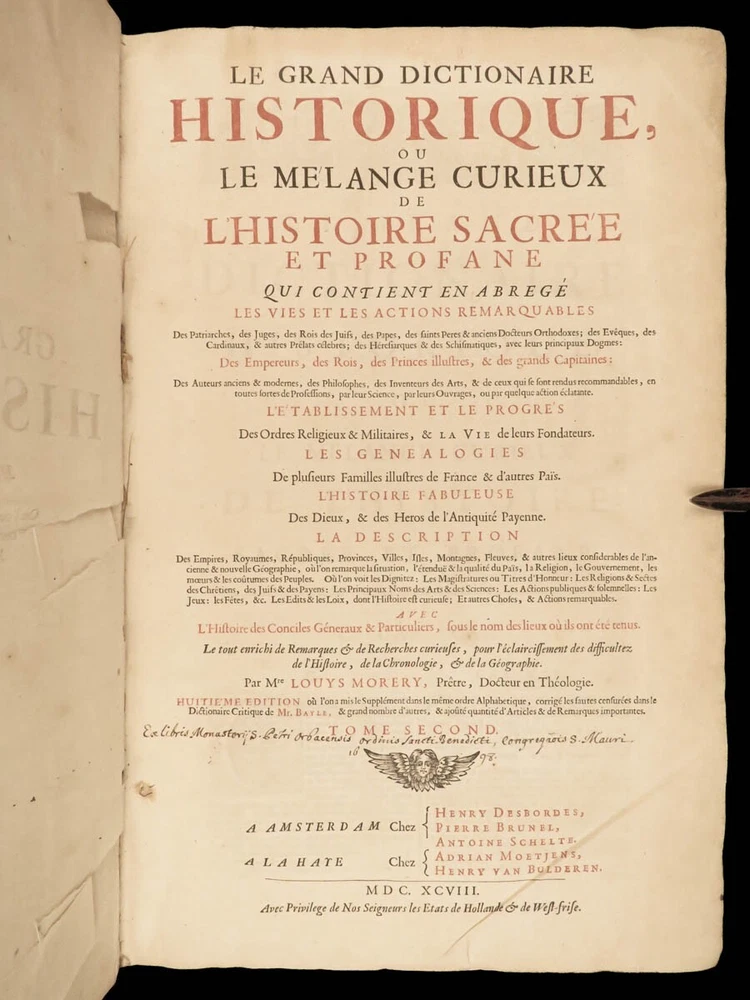 LE GRAND DICTIONAIRE
HISTORIQUE,
OU
LE MELANGE CURIEUX
DE
L'HISTOIRE SACRÉE
ET PROFANE
QUI CONTIENT EN ABREGÉ
LES VIES ET LES ACTIONS REMARQUABLES
Des Patriarches, des Juges, des Rois des Juifs, des Papes, des saints Peres & anciens Docteurs Orthodoxes; des Evêques, des
Cardinaux, & autres Prélats célebres; des Héresiarques & des Schismatiques, avec leurs principaux Dogmes:
Des Empereurs, des Rois, des Princes illustres, & des grands Capitaines:
Des Auteurs anciens & modernes, des Philosophes, des Inventeurs des Arts, & de ceux qui se sont rendus recommandables, en
toutes sortes de Professions, par leur Science, par leurs Ouvrages, ou par quelque action éclatante.
L'ÉTABLISSEMENT ET LE PROGRÉS
Des Ordres Religieux & Militaires, & LA VIE de leurs Fondateurs.
LES GENEALOGIES
De plusieurs Familles illustres de France & d'autres Païs.
L'HISTOIRE FABULEUSE
Des Dieux, & des Heros de l'Antiquité Payenne.
LA DESCRIPTION
Des Empires, Royaumes, Républiques, Provinces, Villes, Isles, Montagnes, Fleuves, & autres lieux considerables de l'an-
cienne & nouvelle Géographie, où l'on remarque la situation, l'étenduë & la qualité du Païs, la Religion, le Gouvernement, les
mœurs & les coûtumes des Peuples. Où l'on voit les Dignitez: Les Magistratures ou Titres d'Honneur: Les Religions & Sectes
des Chrétiens, des Juifs & des Payens: Les Principaux Noms des Arts & des Sciences: Les Actions publiques & solemnelles: Les
Jeux: les Fêtes, &c. Les Edits & les Loix, dont l'Histoire est curieuse; Et autres Choses, & Actions remarquables.
AVEC
L'Histoire des Conciles Géneraux & Particuliers, sous le nom des lieux où ils ont été tenus.
Le tout enrichi de Remarques & de Recherches curieuses, pour l'éclaircissement des difficultez
de l'Histoire, de la Chronologie, & de la Géographie.
Par Mre LOUYS MORERY, Prêtre, Docteur en Théologie.
HUITIEME EDITION où l'on a mis le Supplément dans le même ordre Alphabetique, corrigé les fautes censurées dans le
Dictionaire Critique de Mr. BAYLE, & grand nombre d'autres, & ajoûté quantité d'Articles & de Remarques importantes.
TOME SECOND.
Ex libris Monasterij S. Petri Orbacensis ordinis sancti Benedicti, Congregãois S. Mauri
16 98.
A AMSTERDAM Chez
HENRY DESBORDES,
PIERRE BRUNEL,
ANTOINE SCHELTE.
A LA HAYE Chez
ADRIAN MOETJENS,
HENRY VAN BULDEREN.
MDC. XCVIII.
Avec Privilege de Nos Seigneurs les Etats de Hollande & de West-frise.